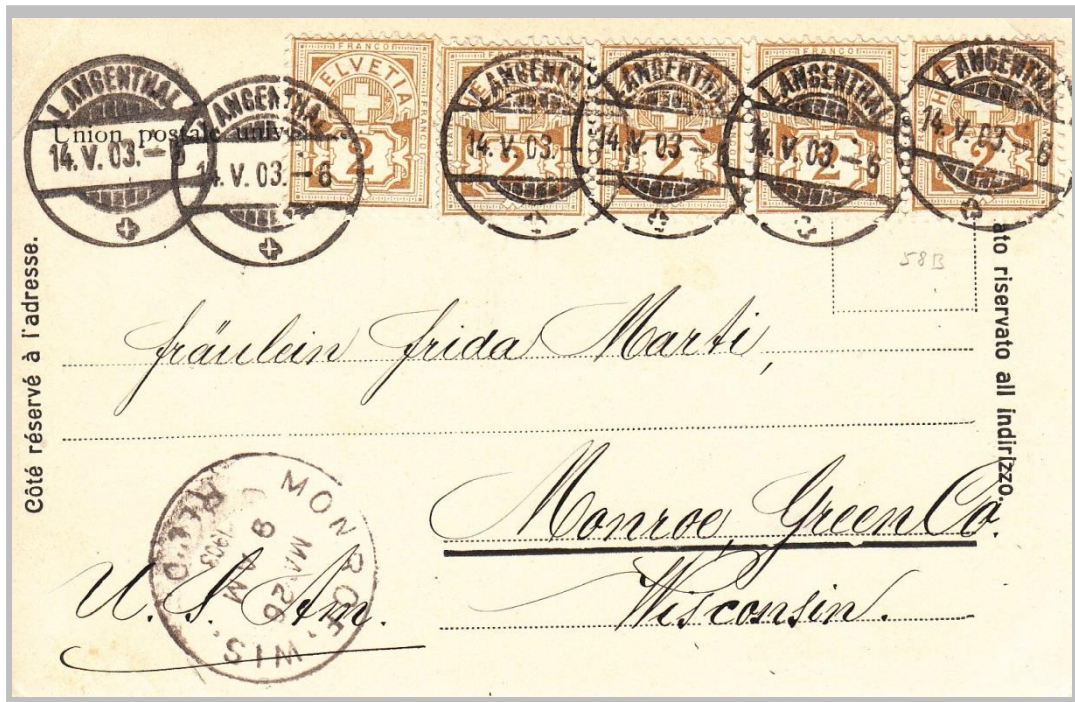 LANGENTHAL
14. V. 03. – 6
LANGENTHAL
14. V. 03. – 6
Union postale
FRANCO
HELVETIA
FRANCO
2
LANGENTHAL
14. V. 03. –
2
LANGENTHAL
14. V. 03. –
2
LANGENTHAL
14. V. 03. – 6
2
LANGENTHAL
14. V. 03. – 6
2
58B
Côté réservé à l'adresse.
ato riservato all indirizzo.
Fräulein Frida Marti,
Monroe, Green Co.
Wisconsin.
U. S. Am.
MONROE, WIS.
REC'D
9 AM
MAY 26
1903